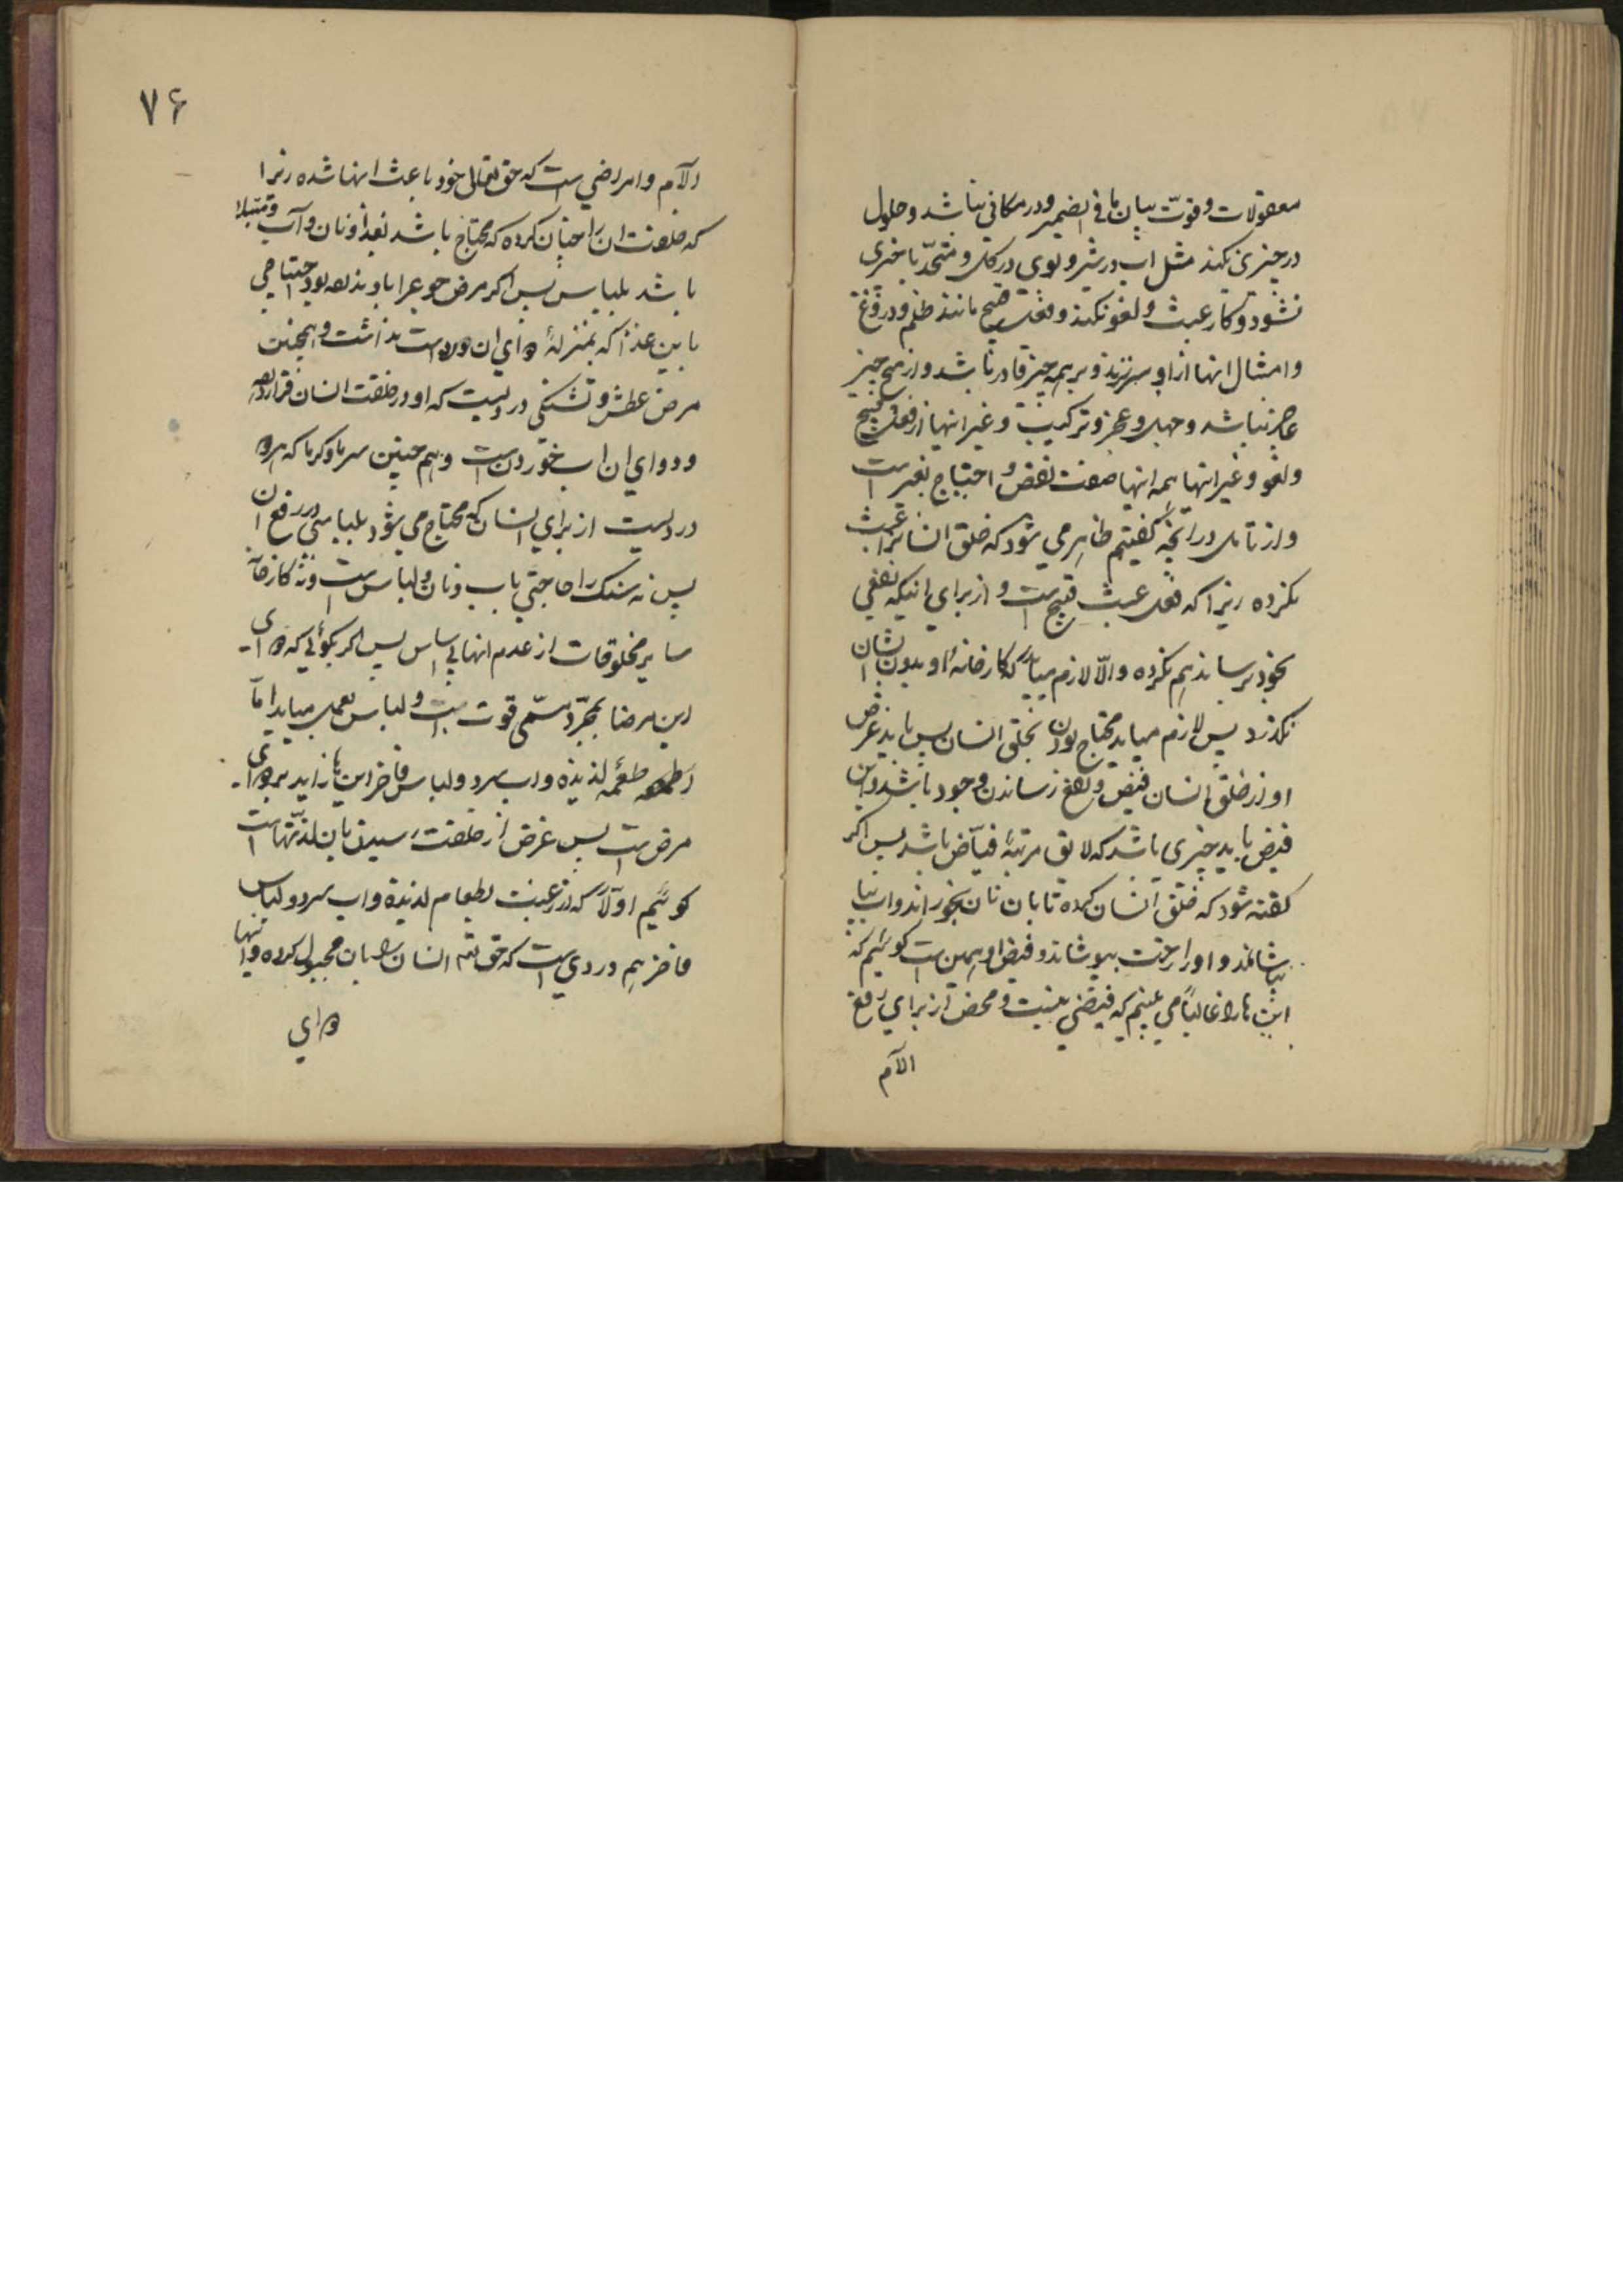 معقولات و قوت بیان ما فی الضمیر و در مکانی نباشد و حلول
در چیزی نکند مثل اب در شیر و بوی در کل و متحد با چیزی
نشود و کار عبث و لغو نکند و فعل قبیح مانند ظلم و دروغ
و امثال انها از او سر نزند و بر همه چیز قادر باشد و از هیچ چیز
عاجز نباشد و جهل و عجز و ترکیب و غیر انها از فعل قبیح
و لغو و غیر انها همه انها صفت نقص و احتیاج بغیر است
و از تامل در انچه کفتیم ظاهر می شود که خلق انسانرا عبث
نکرده زیرا که فعل عبث قبیح است و از برای اینکه نفعی
بخود برساند هم نکرده والّا لازم میاید که کارخانهٔ او بدون انسان
نکذرد پس لازم میاید محتاج بودن بخلق انسان پس باید غرض
او از خلق انسان فیض و نفع رساندن وجود باشد و این
فیض باید چیزی باشد که لایق مرتبهٔ فیّاض باشد پس اکر
کفته شود که خلق انسان کرده تا بان نان بخوراند و اب
بیاشاماند و او را رخت بپوشاند و فیض او همین است کوئیم که
اینها را غالباً می بینیم که فیضی نیست و محض از برای رفع
الآم
۷۶
الآم و امراضی است که حق تعالی خود باعث انها شده زیرا
که خلقت ان را چنان کرده که محتاج باشد بغذا و نان و آب و مبتلا
باشد بلباس پس اکر مرض جوع را باو نداده بود احتیاجی
باین غذا که بمنزلهٔ دوای ان درد است نداشت و همچنین
مرض عطش و تشنکی دردیست که او در خلقت انسان قرار داده
و دوای ان اب خوردن است و هم چنین سرما و کرما که هر دو
دردیست از برای انسان که محتاج می شود بلباسی در رفع ان
پس نه سنک را حاجتی باب و نان و لباس است و نه کارخانهٔ
سایر مخلوقات از عدم انها بی اساس پس اکر بکوئی که دوای
این مرضها بمجرّد مسمّی قوت است و لباس بعمل میاید امّا
اطعمه لذیذه و اب سرد و لباس فاخر اینها زاید بر دوای
مرض است پس غرض از خلقت رسیدن باین لذّتهاست
کوئیم اوّلاً که رغبت بطعام لذیذه و اب سرد و لباس
فاخر هم دردی است که حق تعالی انسان را بان مجبول کرده و اینها
دوای